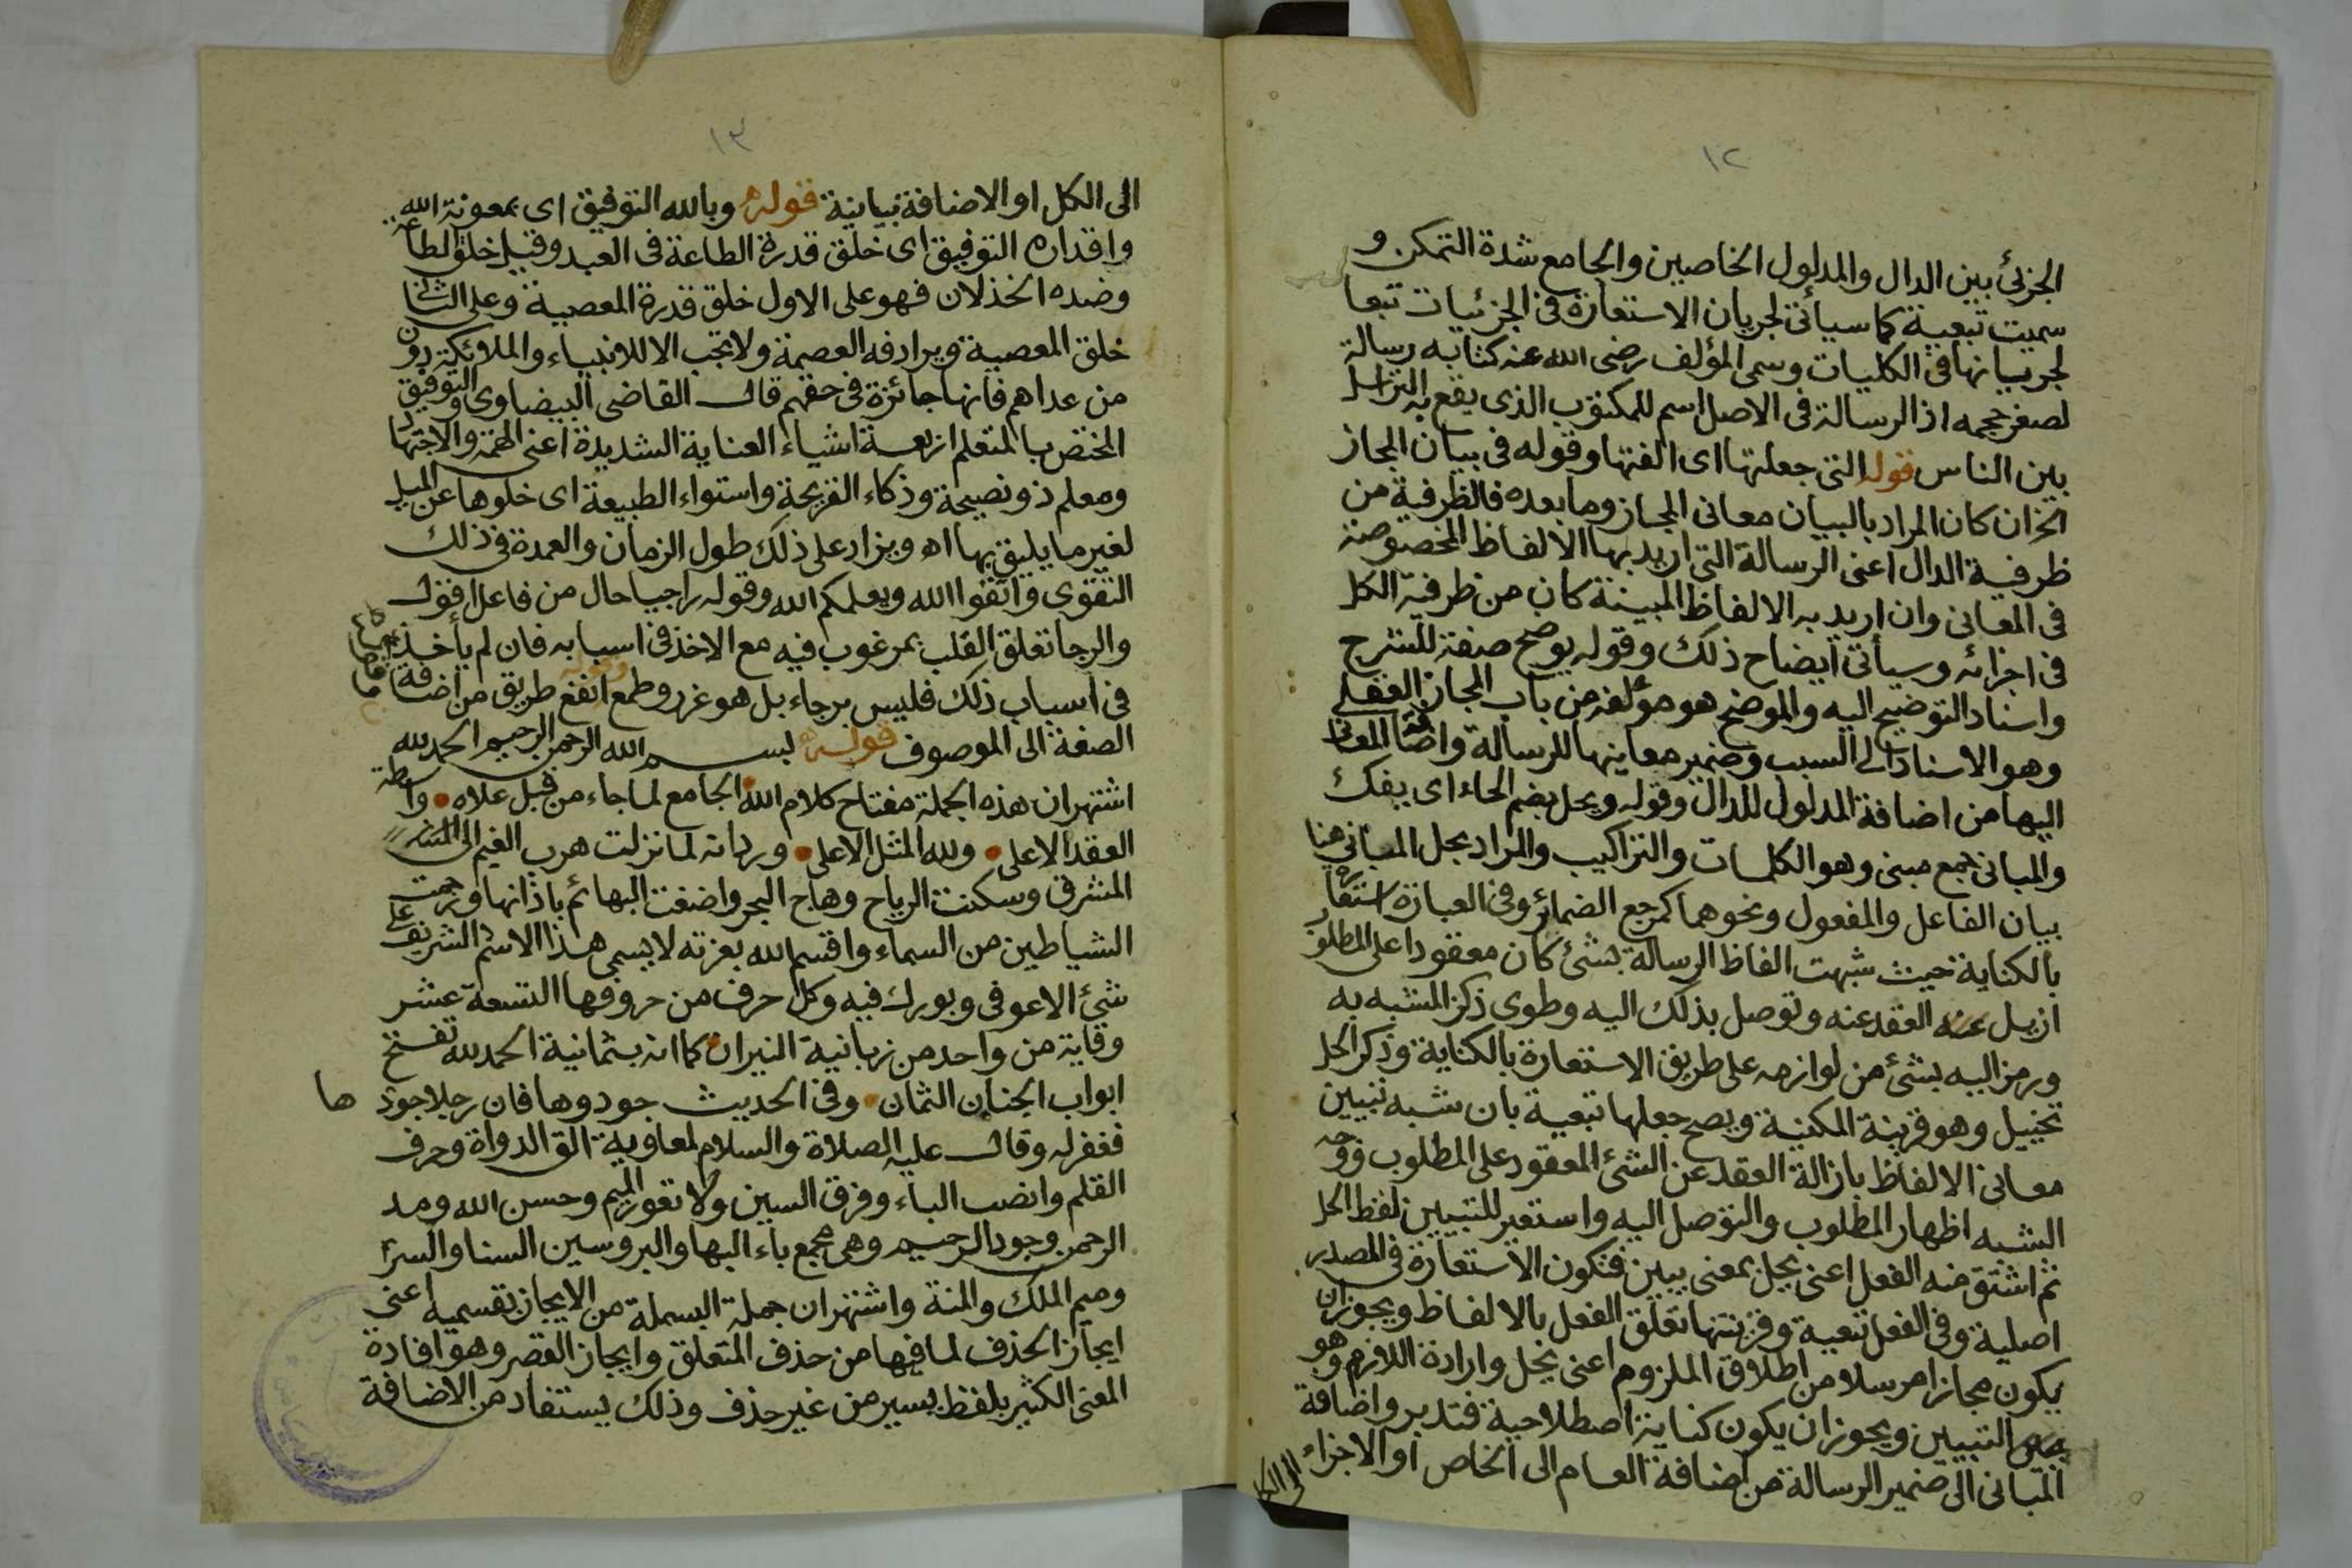 ١٢
الجزئ بين الدال والمدلول الخاصين والجامع شدة التمكن و
سميت تبعية كما سيأتى لجريان الاستعارة فى الجزئيات تبعا
لجريانها فى الكليات وسمى المؤلف رضى الله عنه كتابه رسالة
لصغر حجمه اذ الرسالة فى الاصل اسم للمكتوب الذى يقع به التراسل
بين الناس قوله التى جعلتها اى الفتها وقوله فى بيان المجاز
الخ ان كان المراد بالبيان معانى المجاز وما بعده فالظرفية من
ظرفية الدال اعنى الرسالة التى اريد بها الالفاظ المخصوصة
فى المعانى وان اريد به الالفاظ المبينة كان من ظرفية الكل
فى اجزائه وسيأتى ايضاح ذلك وقوله يوضح صفة للشرح
واسناد التوضيح اليه والموضح هو مؤلفه من باب المجاز العقلى
وهو الاسناد الى السبب وضمير معاينها للرسالة واضافة المعانى
اليها من اضافة المدلول للدال وقوله ويحل بضم الحاء اى يفك
والمبانى جمع مبنى وهو الكلمات والتراكيب والمراد بحل المبانى هنا
بيان الفاعل والمفعول ونحوهما كمرجع الضمائر وفى العبارة استعارة
بالكناية حيث شبهت الفاظ الرسالة بشئ كان معقودا على المطلوب
ازيل العقد عنه وتوصل بذلك اليه وطوى ذكر المشبه به
ورمز اليه بشئ من لوازمه على طريق الاستعارة بالكناية وذكر الحل
تخييل وهو قرينة المكنية ويصح جعلها تبعية بان شبه تبيين
معانى الالفاظ بازالة العقد عن الشئ المعقود على المطلوب ووجه
الشبه اظهار المطلوب والتوصل اليه واستعير للتبيين لفظ الحل
ثم اشتق منه الفعل اعنى يحل بمعنى يبين فتكون الاستعارة فى المصدر
اصلية وفى الفعل تبعية وقرينتها تعلق الفعل بالالفاظ ويجوز ان
يكون مجازا مرسلا من اطلاق الملزوم اعنى يحل وارادة اللازم وهو
التبيين ويجوز ان يكون كناية اصطلاحية فتدبر واضافة
المبانى الى ضمير الرسالة من اضافة العام الى الخاص او الاجزاء
الى الكل
١٣
الى الكل او الاضافة بيانية قوله وبالله التوفيق اى بمعونة الله
واقداره التوفيق اى خلق قدرة الطاعة فى العبد وقيل خلق الطاعة
وضده الخذلان فهو على الاول خلق قدرة المعصية وعلى الثانى
خلق المعصية ويرادفه العصمة ولا تجب الا للانبياء والملائكة دون
من عداهم فانها جائزة فى حقهم قال القاضى البيضاوى والتوفيق
المختص بالمتعلم اربعة اشياء العناية الشديدة اعنى الهمة والاجتهاد
ومعلم ذو نصيحة وذكاء القريحة واستواء الطبيعة اى خلوها عن الميل
لغير ما يليق بها اه ويزاد على ذلك طول الزمان والعمدة فى ذلك
التقوى واتقوا الله ويعلمكم الله وقوله راجيا حال من فاعل اقول
والرجا تعلق القلب بمرغوب فيه مع الاخذ فى اسبابه فان لم يأخذ
فى اسباب ذلك فليس برجاء بل هو غرر وطمع وقوله انفع طريق من اضافة
الصفة الى الموصوف قوله بسم الله الرحمن الرحيم الحمد لله
اشتهر ان هذه الجملة مفتاح كلام الله الجامع لما جاء من قبل علاه وواسطة
العقد الاعلى ولله المثل الاعلى ورد انه لما نزلت هرب الغيم الى
المشرق وسكنت الرياح وهاج البحر واصغت البهائم باذانها ورجمت
الشياطين من السماء واقسم الله بعزته لا يسمى هذا الاسم الشريف على
شئ الا عوفى وبورك فيه وكل حرف من حروفها التسعة عشر
وقاية من واحد من زبانية النيران كما انه بثمانية الحمد لله تفتح
ابواب الجنان الثمان وفى الحديث جودوها فان رجلا جودها
فغفر له وقال عليه الصلاة والسلام لمعاوية الق الدواة وحرف
القلم وانصب الباء وفرق السين ولا تعور الميم وحسن الله ومد
الرحمن وجود الرحيم وهى مجمع باء البها والبر وسين السنا والسر
وميم الملك والمنة واشتهر ان جملة البسملة من الايجاز بقسميه اعنى
ايجاز الحذف لما فيها من حذف المتعلق وايجاز القصر وهو افادة
المعنى الكثير بلفظ يسير من غير حذف وذلك يستفاد من الاضافة